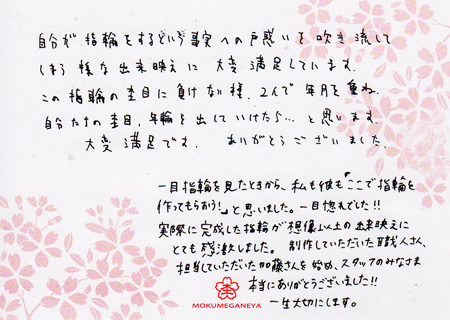 自分が指輪をするという事実への戸惑いを吹き流して
しまう様な出来映えに大変満足しています。
この指輪の杢目に負けない様、2人で年月を重ね、
自分たちの杢目、年輪を出していけたら…と思います。
大変満足です。ありがとうございました。
一目指輪を見たときから、私も彼も「ここで指輪を
作ってもらおう!」と思いました。一目惚れでした!!
実際に完成した指輪が想像以上の出来映えに
とても感激しました。制作していただいた職人さん、
担当していただいた加藤さんを始め、スタッフのみなさま
本当にありがとうございました!!
一生大切にします。
MOKUMEGANEYA